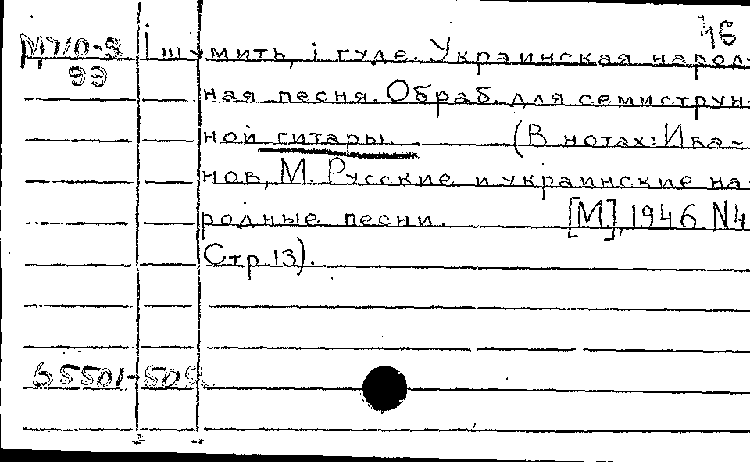 46
М710-3 І шумить, і гуде. Украинская народ-
99 ная песня. Обраб. для семиструн-
ной гитары. (В нотах: Ива-
нов, М. Русские и украинские на-
родные песни. [М], 1946 N4
Стр 13).
65501-505